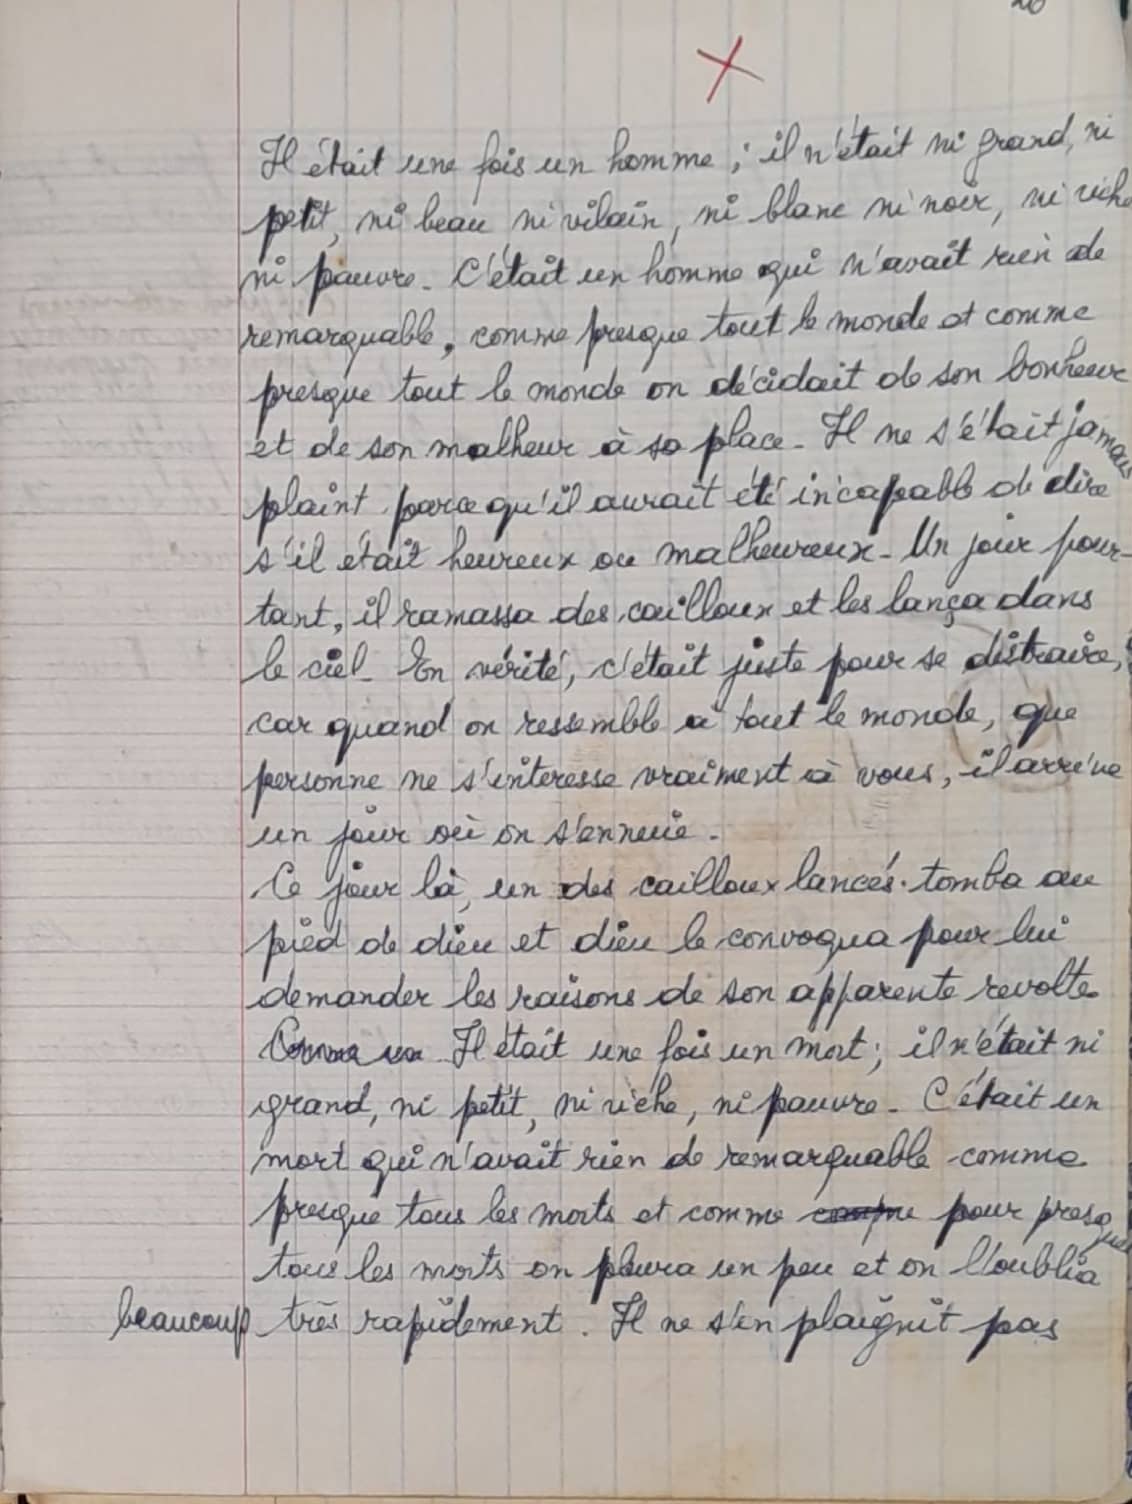 20
Il était une fois un homme ; il n'était ni grand, ni
petit, ni beau ni vilain, ni blanc ni noir, ni riche
ni pauvre. C'était un homme qui n'avait rien de
remarquable, comme presque tout le monde et comme
presque tout le monde on décidait de son bonheur
et de son malheur à sa place. Il ne s'était jamais
plaint parce qu'il aurait été incapable de dire
s'il était heureux ou malheureux. Un jour pour-
tant, il ramassa des cailloux et les lança dans
le ciel. En vérité, c'était juste pour se distraire,
car quand on ressemble à tout le monde, que
personne ne s'interesse vraiment à vous, il arrive
un jour où on s'ennuie.
Ce jour là, un des cailloux lancés tomba au
pied de dieu et dieu le convoqua pour lui
demander les raisons de son apparente revolte.
Comme un Il était une fois un mort ; il n'était ni
grand, ni petit, ni riche, ni pauvre. C'était un
mort qui n'avait rien de remarquable comme
presque tous les morts et comme comme pour presque
tous les morts on pleura un peu et on l'oublia
beaucoup très rapidement. Il ne s'en plaignit pas